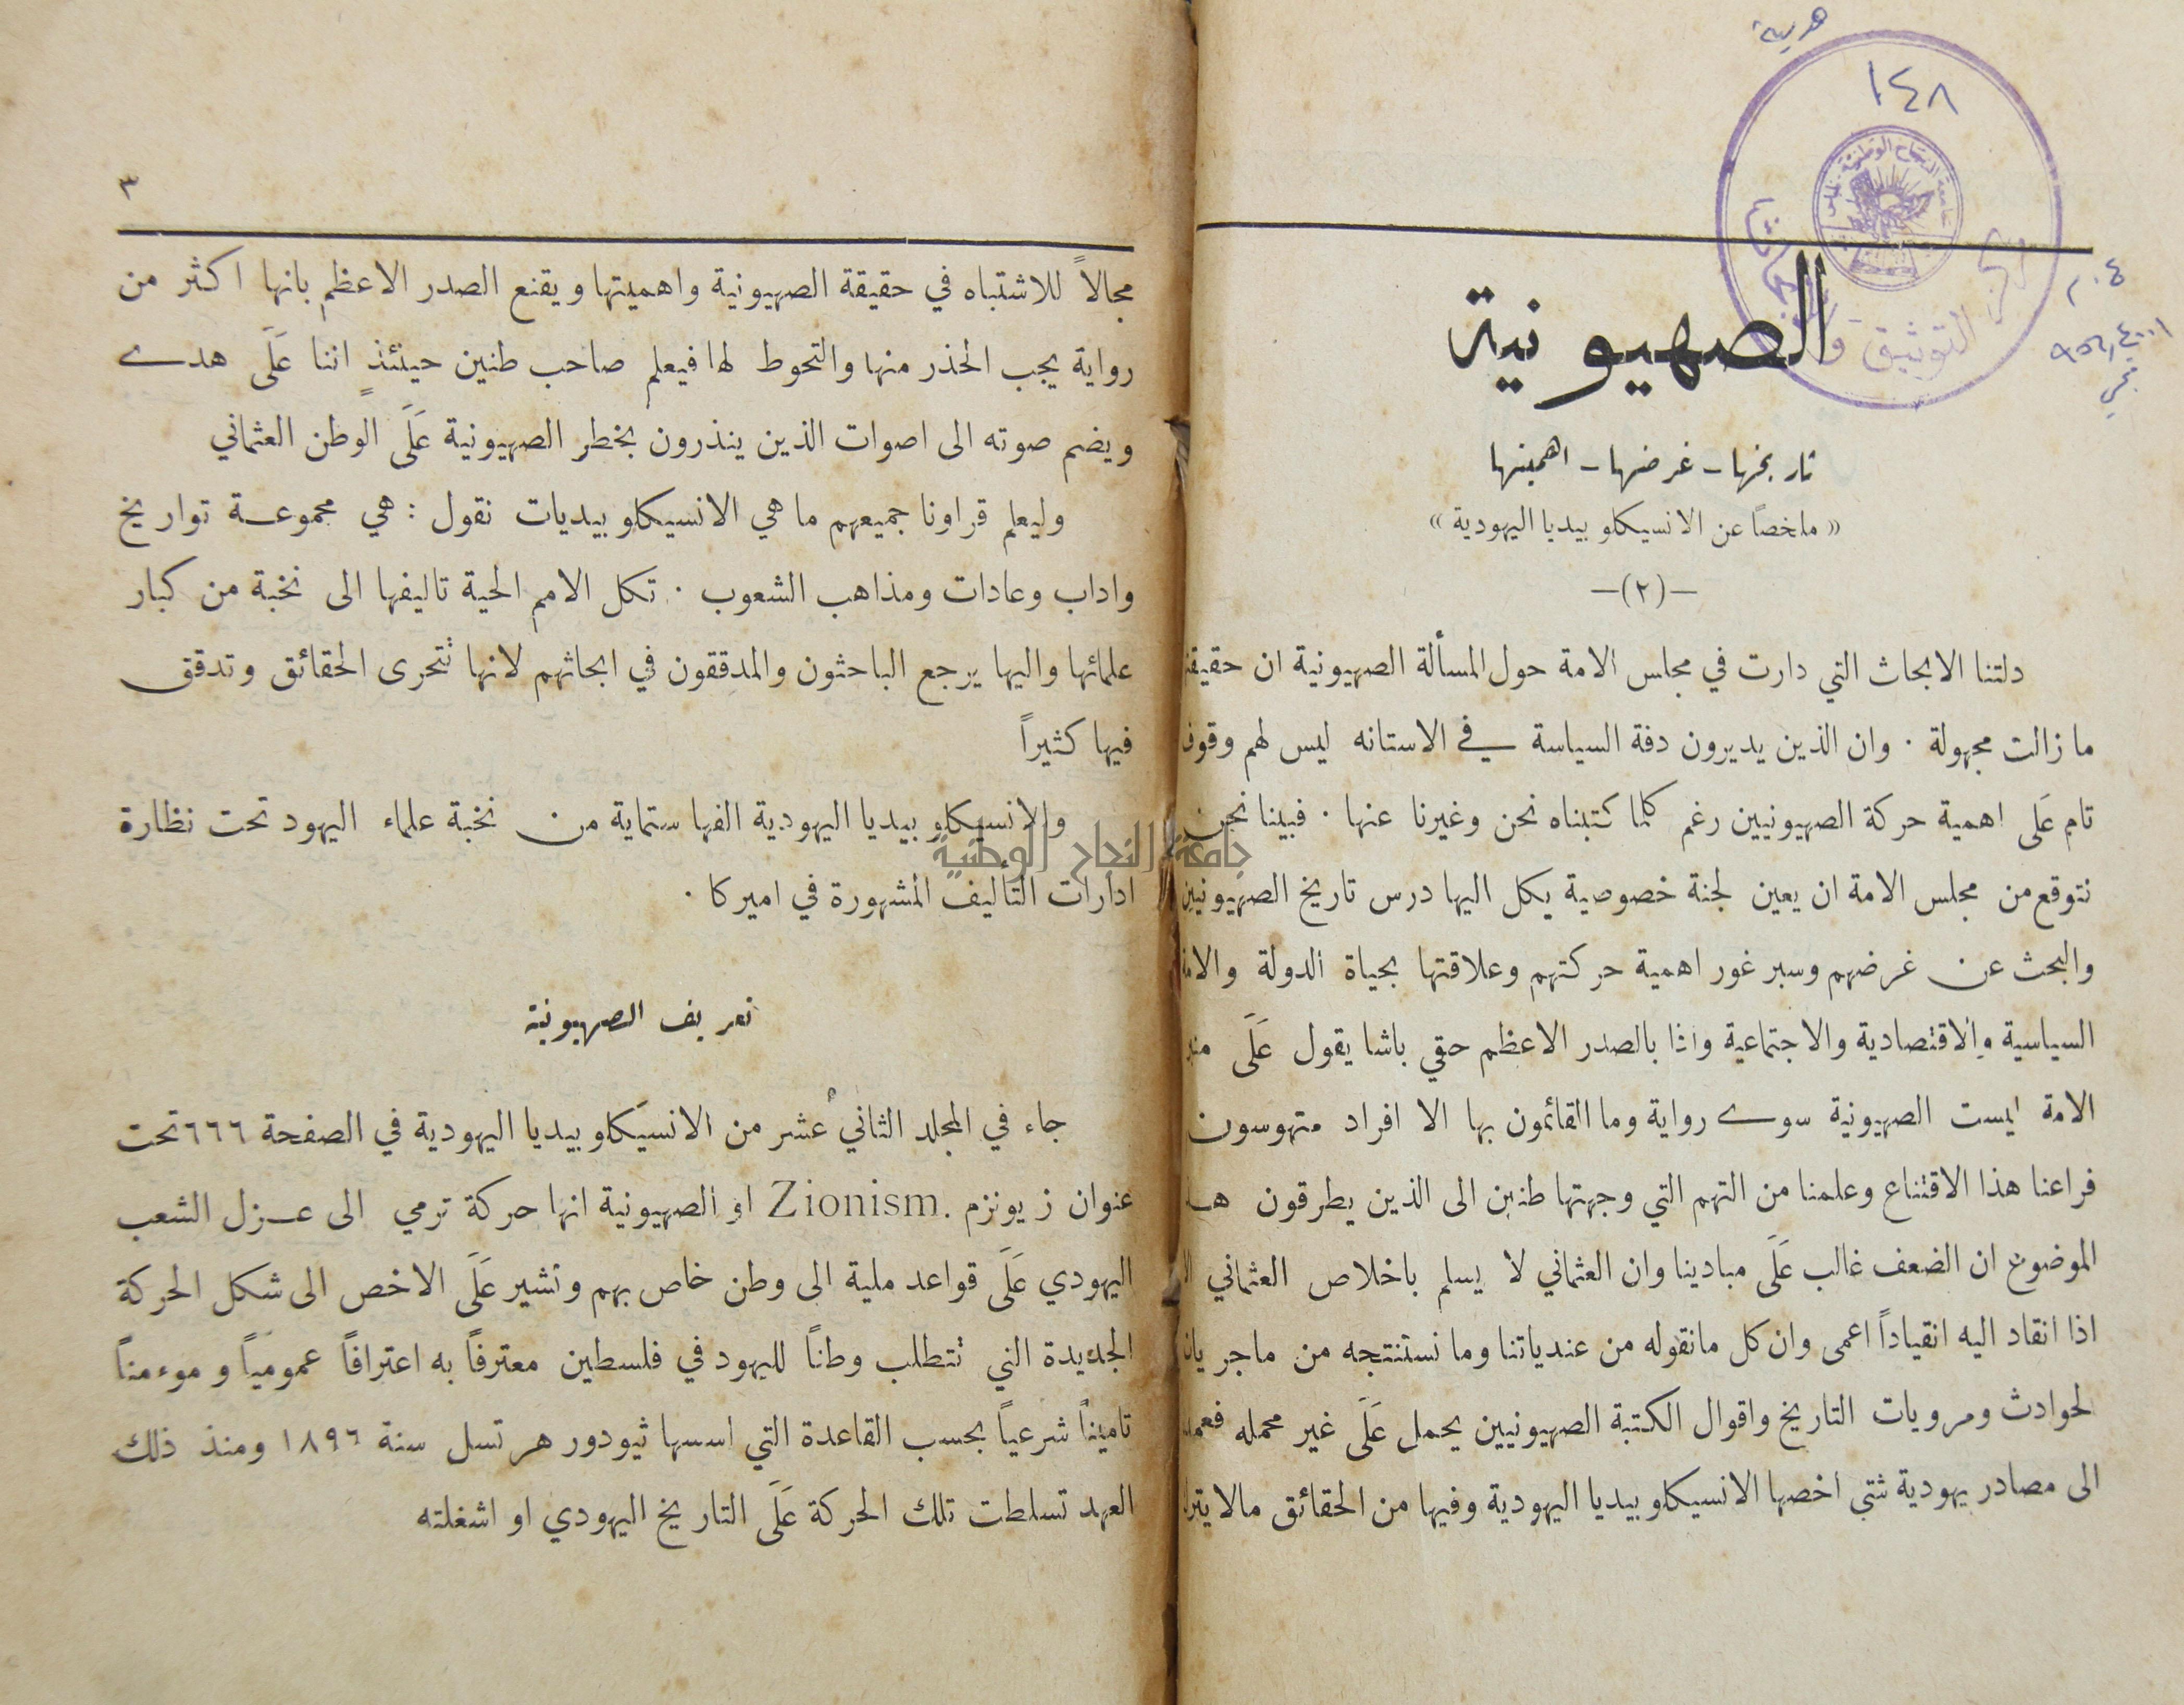 هدية
١٤٨
جامعة النجاح الوطنية - نابلس
التوثيق
الصهيونية
تاريخها - غرضها - اهميتها
« ملخصاً عن الانسيكلوبيديا اليهودية »
—(٢)—
دلتنا الابحاث التي دارت في مجلس الامة حول المسألة الصهيونية ان حقيقة
ما زالت مجهولة . وان الذين يديرون دفة السياسة في الاستانه ليس لهم وقوف
تام عَلَى اهمية حركة الصهيونيين رغم كلما كتبناه نحن وغيرنا عنها . فبينا نحن
نتوقع من مجلس الامة ان يعين لجنة خصوصية يكل اليها درس تاريخ الصهيونيين
والبحث عن غرضهم وسبر غور اهمية حركتهم وعلاقتها بحياة الدولة والامة
السياسية والاقتصادية والاجتماعية واذا بالصدر الاعظم حقي باشا يقول عَلَى منبر
الامة ليست الصهيونية سوے رواية وما القائمون بها الا افراد متهوسون
فراعنا هذا الاقتناع وعلمنا من التهم التي وجهتها طنين الى الذين يطرقون هـ
الموضوع ان الضعف غالب عَلَى مبادينا وان العثماني لا يسلم باخلاص العثماني الا
اذا انقاد اليه انقياداً اعمى وان كل مانقوله من عندياتنا وما نستنتجه من ماجريات
الحوادث ومرويات التاريخ واقوال الكتبة الصهيونيين يحمل عَلَى غير محمله فعمدنا
الى مصادر يهودية شتى اخصها الانسيكلوبيديا اليهودية وفيها من الحقائق مالا يترك
٣
مجالاً للاشتباه في حقيقة الصهيونية واهميتها ويقنع الصدر الاعظم بانها اكثر من
رواية يجب الحذر منها والتحوط لها فيعلم صاحب طنين حينئذٍ اننا عَلَى هدے
ويضم صوته الى اصوات الذين ينذرون بخطر الصهيونية عَلَى الوطن العثماني
وليعلم قراونا جميعهم ما هي الانسيكلوبيديات نقول : هي مجموعة تواريخ
واداب وعادات ومذاهب الشعوب . تكل الامم الحية تاليفها الى نخبة من كبار
علمائها واليها يرجع الباحثون والمدققون في ابحاثهم لانها تتحرى الحقائق وتدقق
فيها كثيراً
والانسيكلوبيديا اليهودية الفها ستماية من نخبة علماء اليهود تحت نظارة
جامعة النجاح الوطنية
ادارات التأليف المشهورة في اميركا .
تعريف الصهيونية
جاء في المجلد الثاني عشر من الانسيكلوبيديا اليهودية في الصفحة ٦٦٦ تحت
عنوان زيونزم Zionism. او الصهيونية انها حركة ترمي الى عزل الشعب
اليهودي عَلَى قواعد ملية الى وطن خاص بهم وتشير عَلَى الاخص الى شكل الحركة
الجديدة التي تتطلب وطناً لليهود في فلسطين معترفاً به اعترافاً عمومياً وموءمناً
تاميناً شرعياً بحسب القاعدة التي اسسها ثيودور هرتسل سنة ١٨٩٦ ومنذ ذلك
العهد تسلطت تلك الحركة عَلَى التاريخ اليهودي او اشغلته